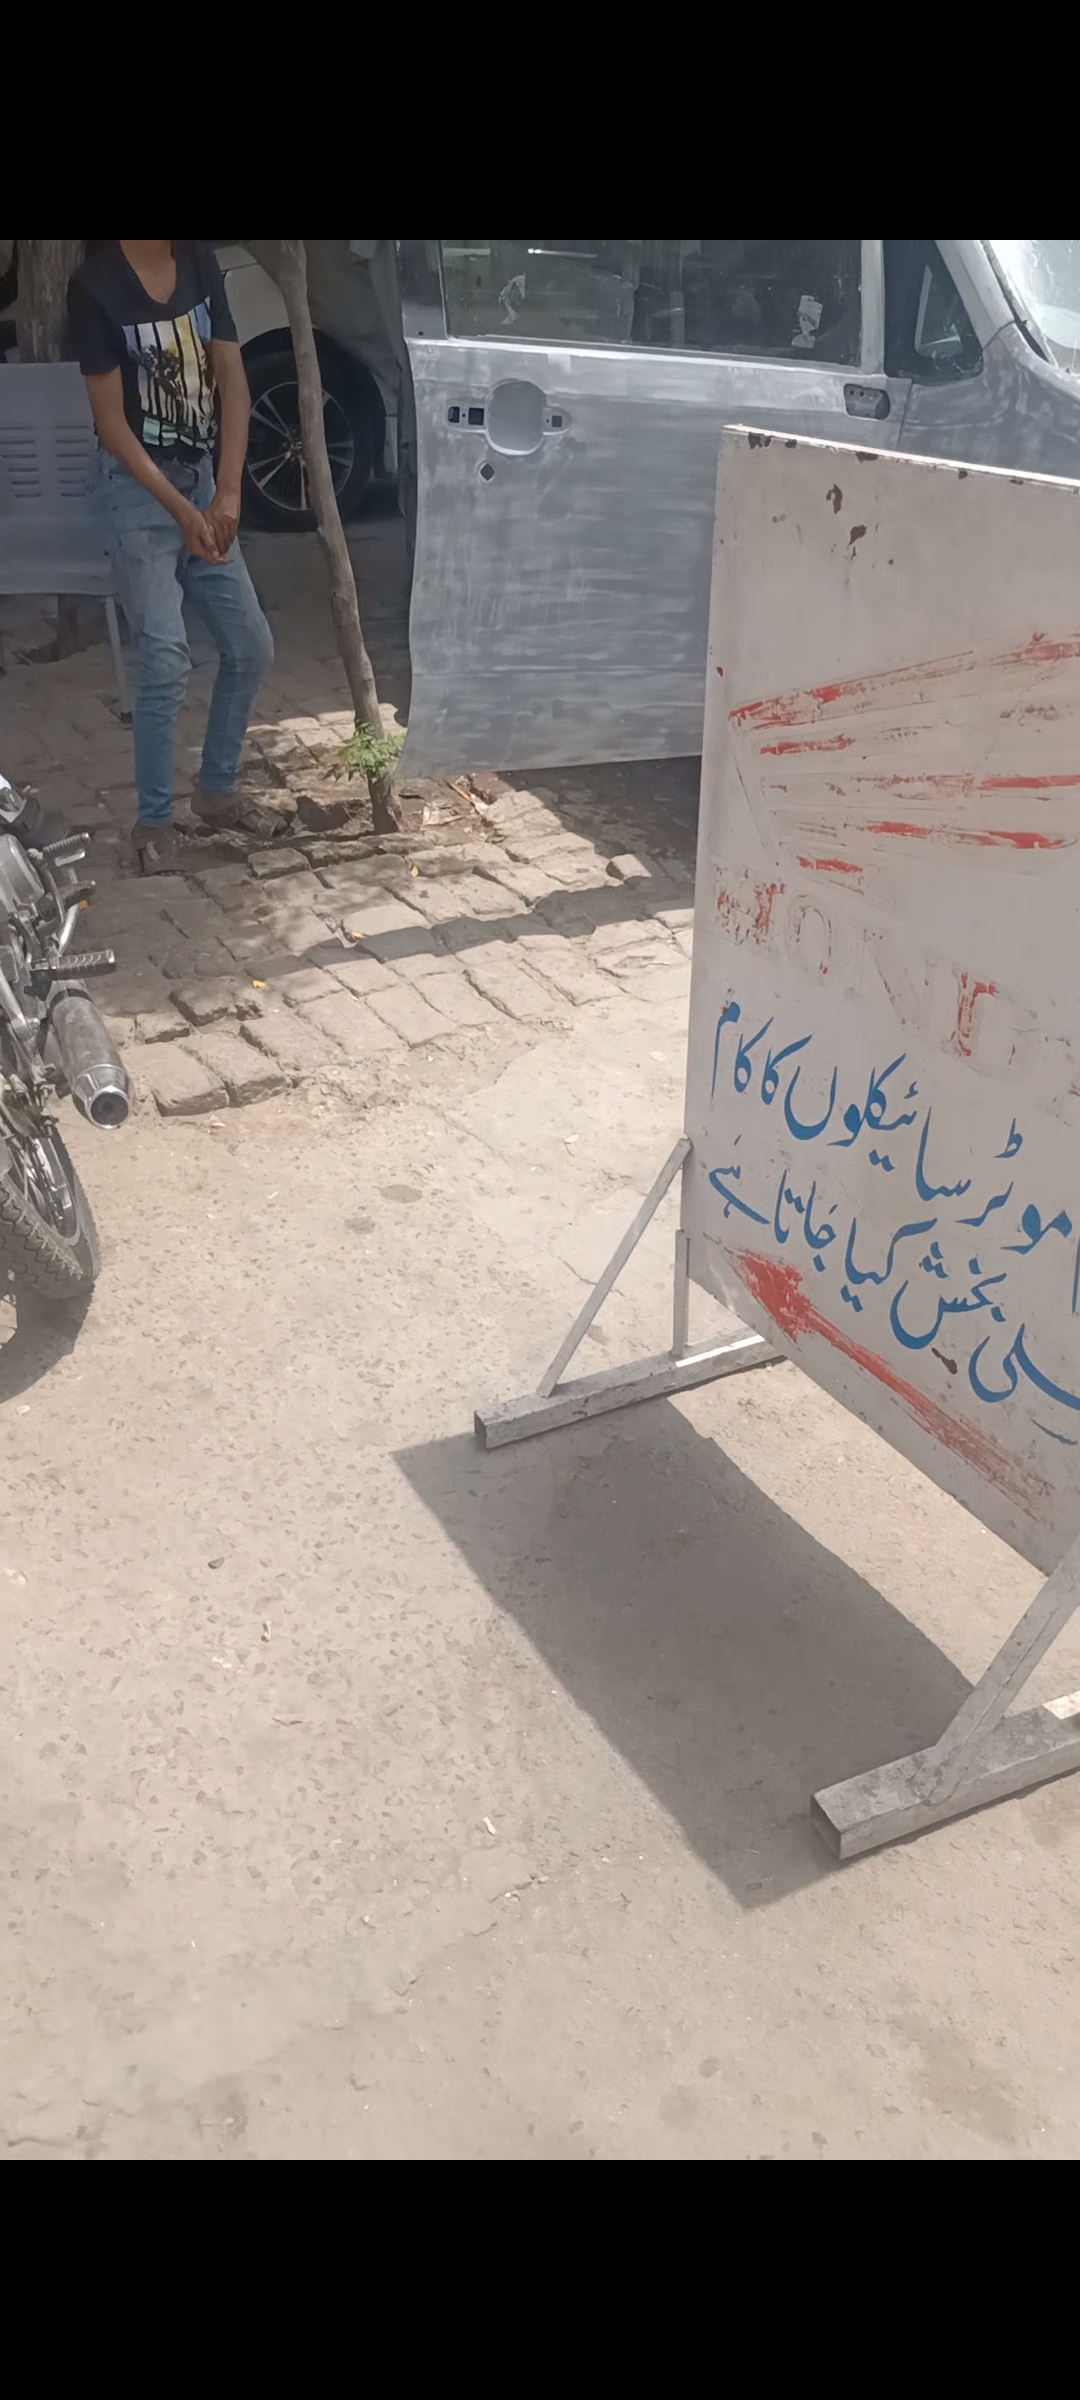 HOND
موٹر سائیکلوں کا کام
بخش کیا جاتا ہے